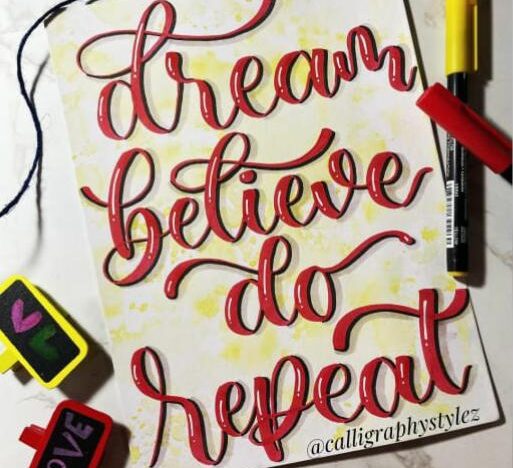 dream
believe
do
repeat
@calligraphystylez